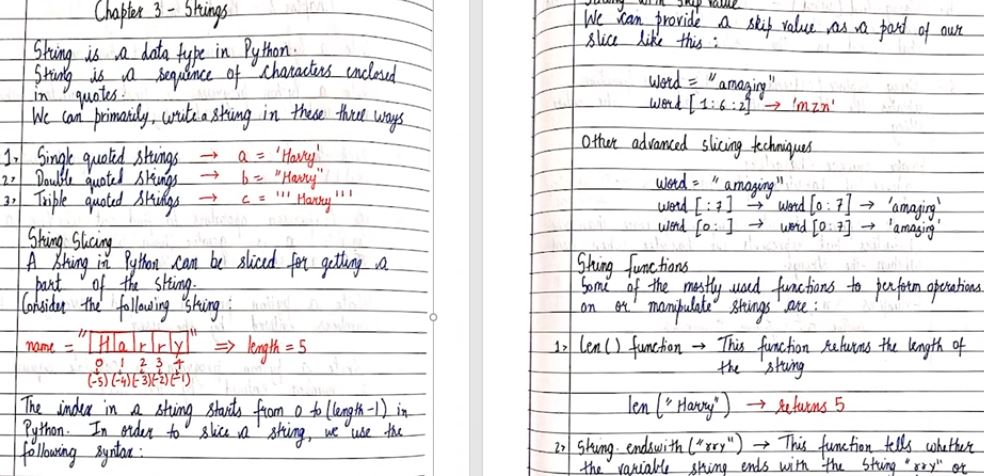 Chapter 3 - Strings
String is a data type in Python.
String is a sequence of characters enclosed
in quotes.
We can primarily, write a string in these three ways
1> Single quoted strings → a = 'Harry'
2> Double quoted strings → b = "Harry"
3> Triple quoted strings → c = ''' Harry '''
String Slicing
A string in Python can be sliced for getting a
part of the string.
Consider the following string :
name = "Harry" ⇒ length = 5
0 1 2 3 4
(-5) (-4) (-3) (-2) (-1)
The index in a string starts from 0 to (length-1) in
Python. In order to slice a string, we use the
following syntax :
Slicing with skip value
We can provide a skip value as a part of our
slice like this :
word = "amazing"
word [1:6:2] → 'mzn'
Other advanced slicing techniques
word = "amazing"
word [:7] → word [0:7] → 'amazing'
word [0:] → word [0:7] → 'amazing'
String functions
Some of the mostly used functions to perform operations
on or manipulate strings are :
1> len() function → This function returns the length of
the string
len ("Harry") → returns 5
2> String.endswith ("rry") → This function tells whether
the variable string ends with the string "rry" or